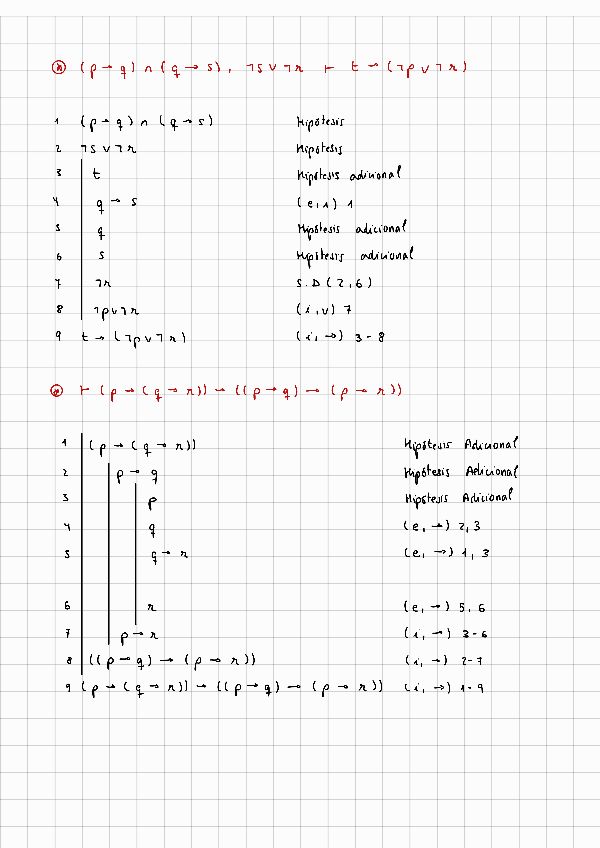 (p → q) ∧ (q → s), ¬s ∨ ¬r ⊢ t → (¬p ∨ ¬r)
1 (p → q) ∧ (q → s) Hipótesis
2 ¬s ∨ ¬r Hipótesis
3 t Hipótesis adicional
4 q → s (e, ∧) 1
5 q Hipótesis adicional
6 s Hipótesis adicional
7 ¬r S.D (2,6)
8 ¬p ∨ ¬r (i, ∨) 7
9 t → (¬p ∨ ¬r) (i, →) 3-8
⊢ (p → (q → r)) → ((p → q) → (p → r))
1 (p → (q → r)) Hipótesis Adicional
2 p → q Hipótesis Adicional
3 p Hipótesis Adicional
4 q (e, →) 2,3
5 q → r (e, →) 1, 3
6 r (e, →) 5, 6
7 p → r (i, →) 3-6
8 ((p → q) → (p → r)) (i, →) 2-7
9 (p → (q → r)) → ((p → q) → (p → r)) (i, →) 1-9